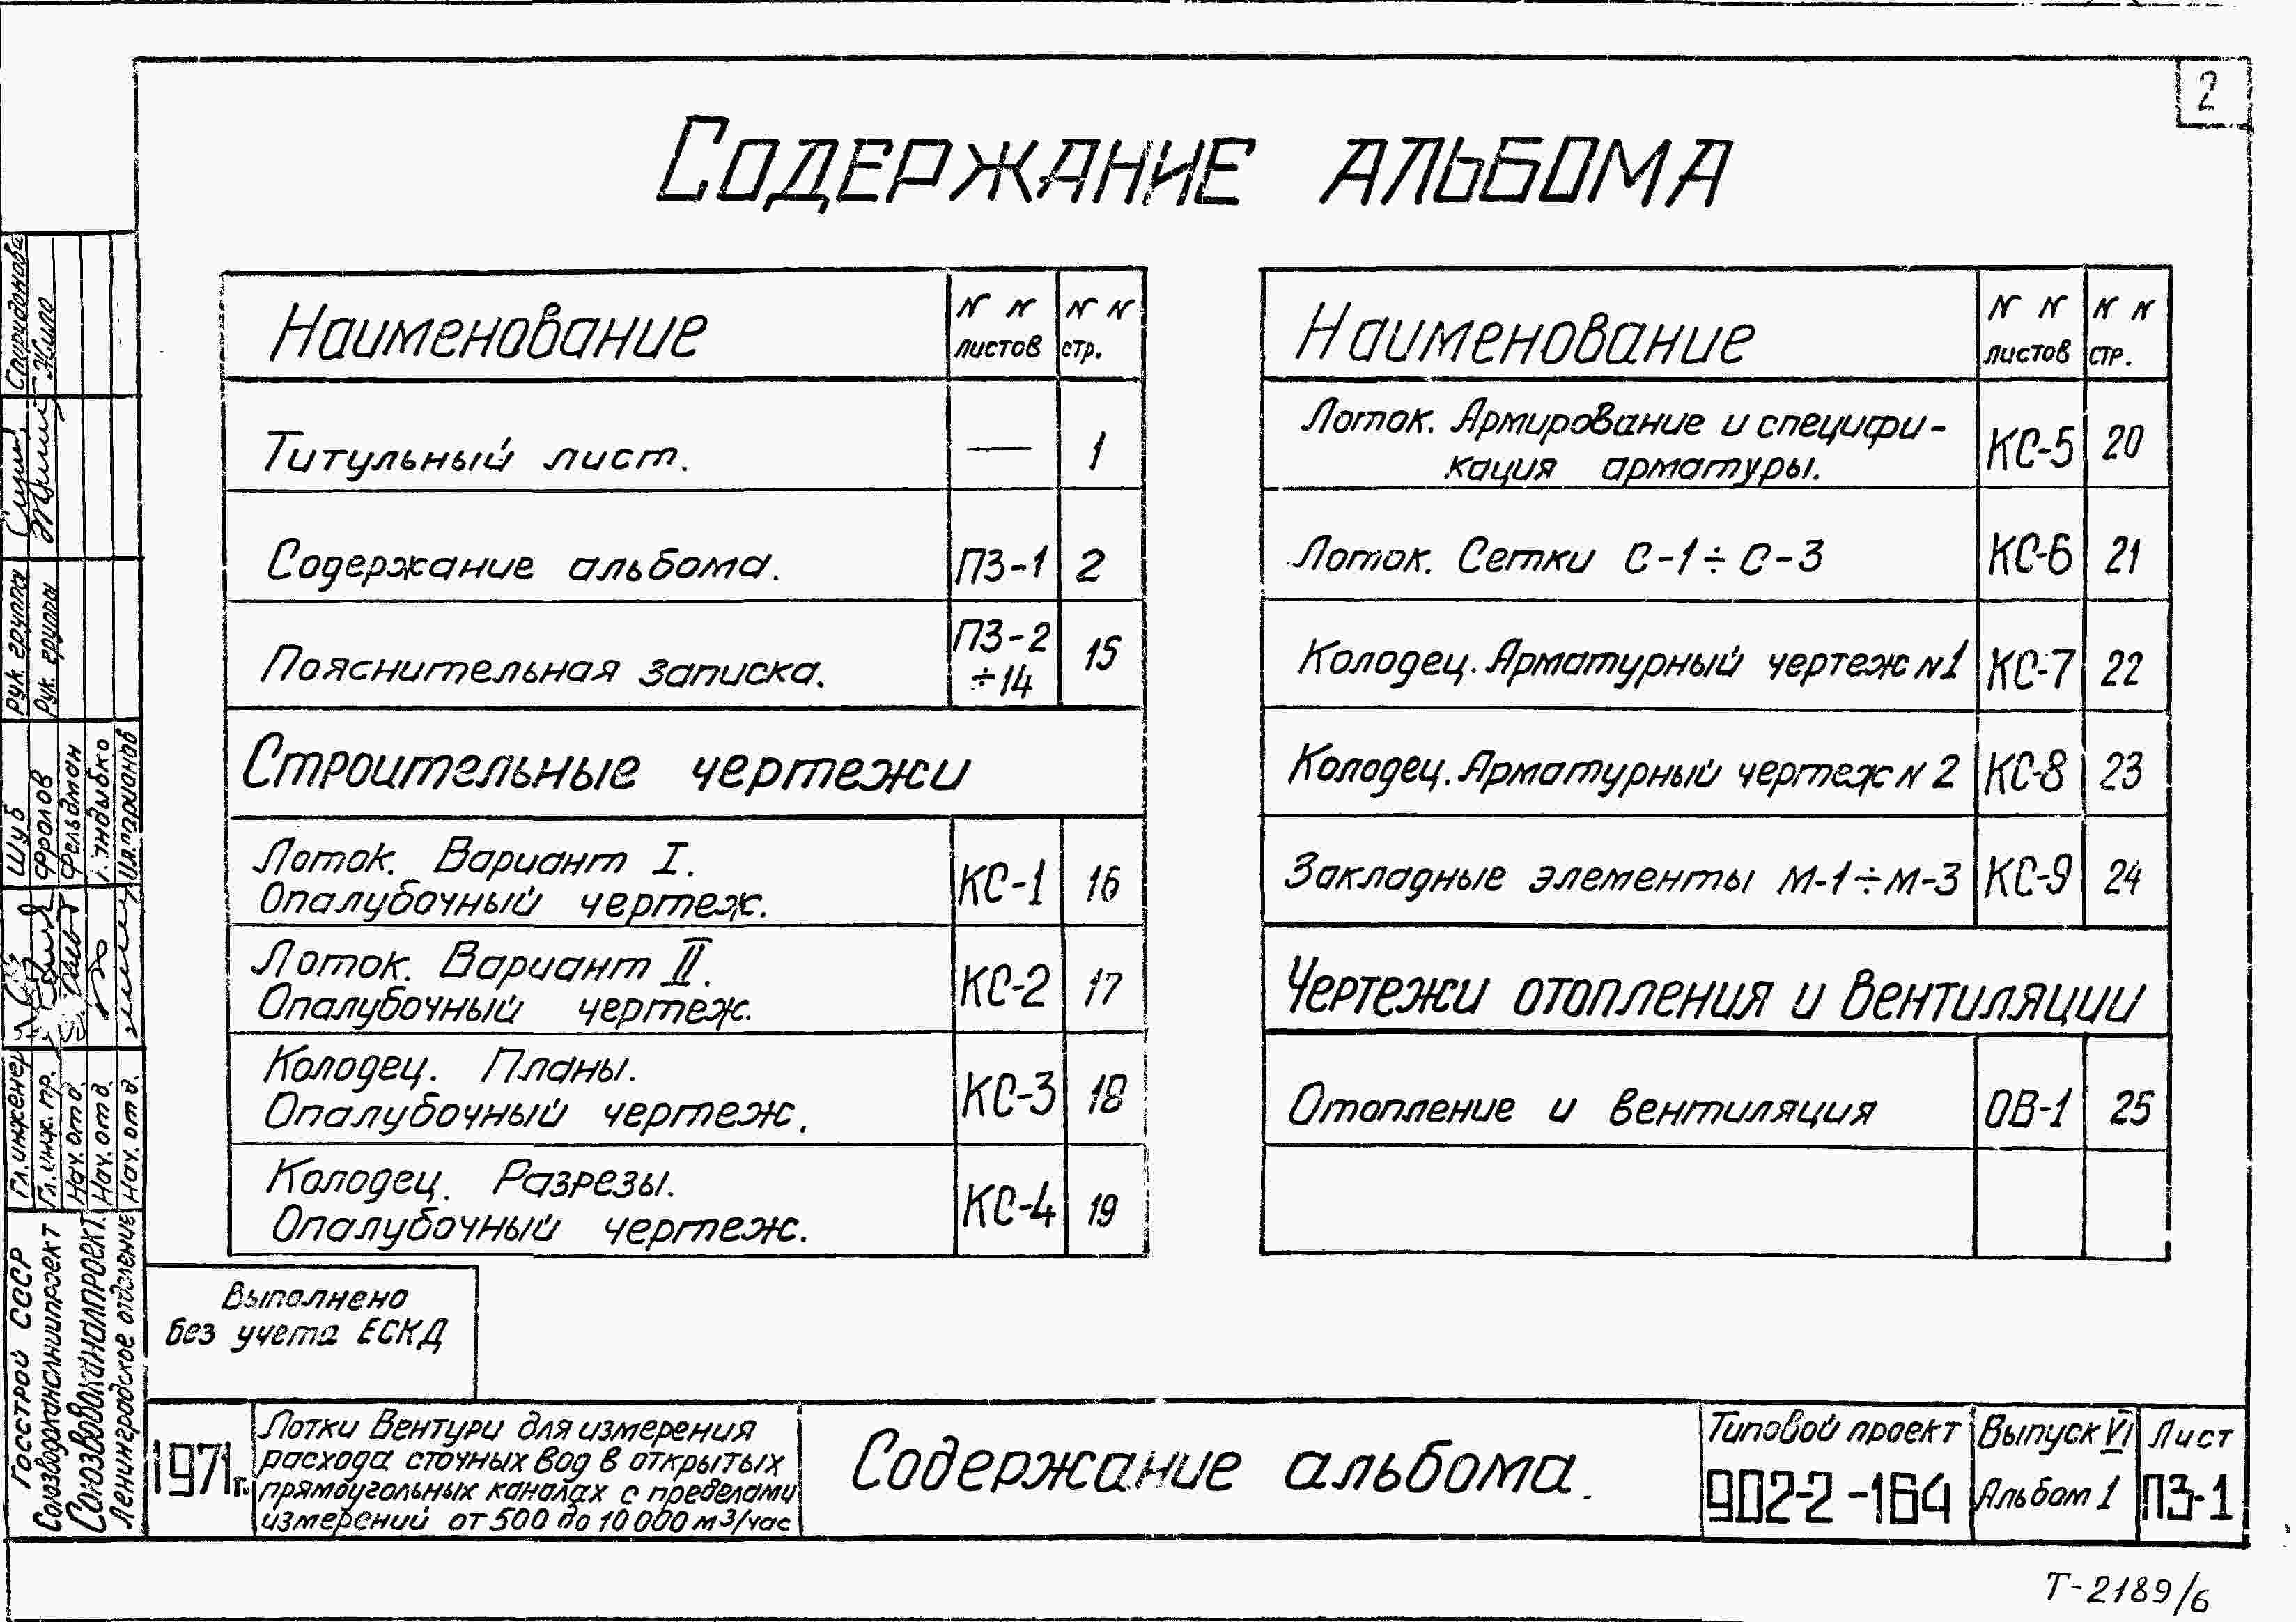 2
СОДЕРЖАНИЕ АЛЬБОМА
Наименование
N N листов
N N стр.
Титульный лист. — 1
Содержание альбома. ПЗ-1 2
Пояснительная записка. ПЗ-2 ÷14 15
Строительные чертежи
Лоток. Вариант I.
Опалубочный чертеж. КС-1 16
Лоток. Вариант II.
Опалубочный чертеж. КС-2 17
Колодец. Планы.
Опалубочный чертеж. КС-3 18
Колодец. Разрезы.
Опалубочный чертеж. КС-4 19
Наименование
N N листов
N N стр.
Лоток. Армирование и специфи-
кация арматуры. КС-5 20
Лоток. Сетки С-1÷С-3 КС-6 21
Колодец. Арматурный чертеж N1 КС-7 22
Колодец. Арматурный чертеж N 2 КС-8 23
Закладные элементы М-1÷М-3 КС-9 24
Чертежи отопления и вентиляции
Отопление и вентиляция ОВ-1 25
Выполнено
без учета ЕСКД
Госстрой СССР
Союзводоканалниипроект
Союзводоканалпроект
Ленинградское отделение
Гл. инженер Шуб Рук. группы Спиридонова
Гл. инж. пр. Фролов Рук. группы
Нач. отд. Фельдман
Нач. отд.
Нач. отд.
1971г.
Лотки Вентури для измерения
расхода сточных вод в открытых
прямоугольных каналах с пределами
измерений от 500 до 10 000 м3/час
Содержание альбома.
Типовой проект
902-2-164
Выпуск VI
Альбом 1
Лист
ПЗ-1
Т-2189/6